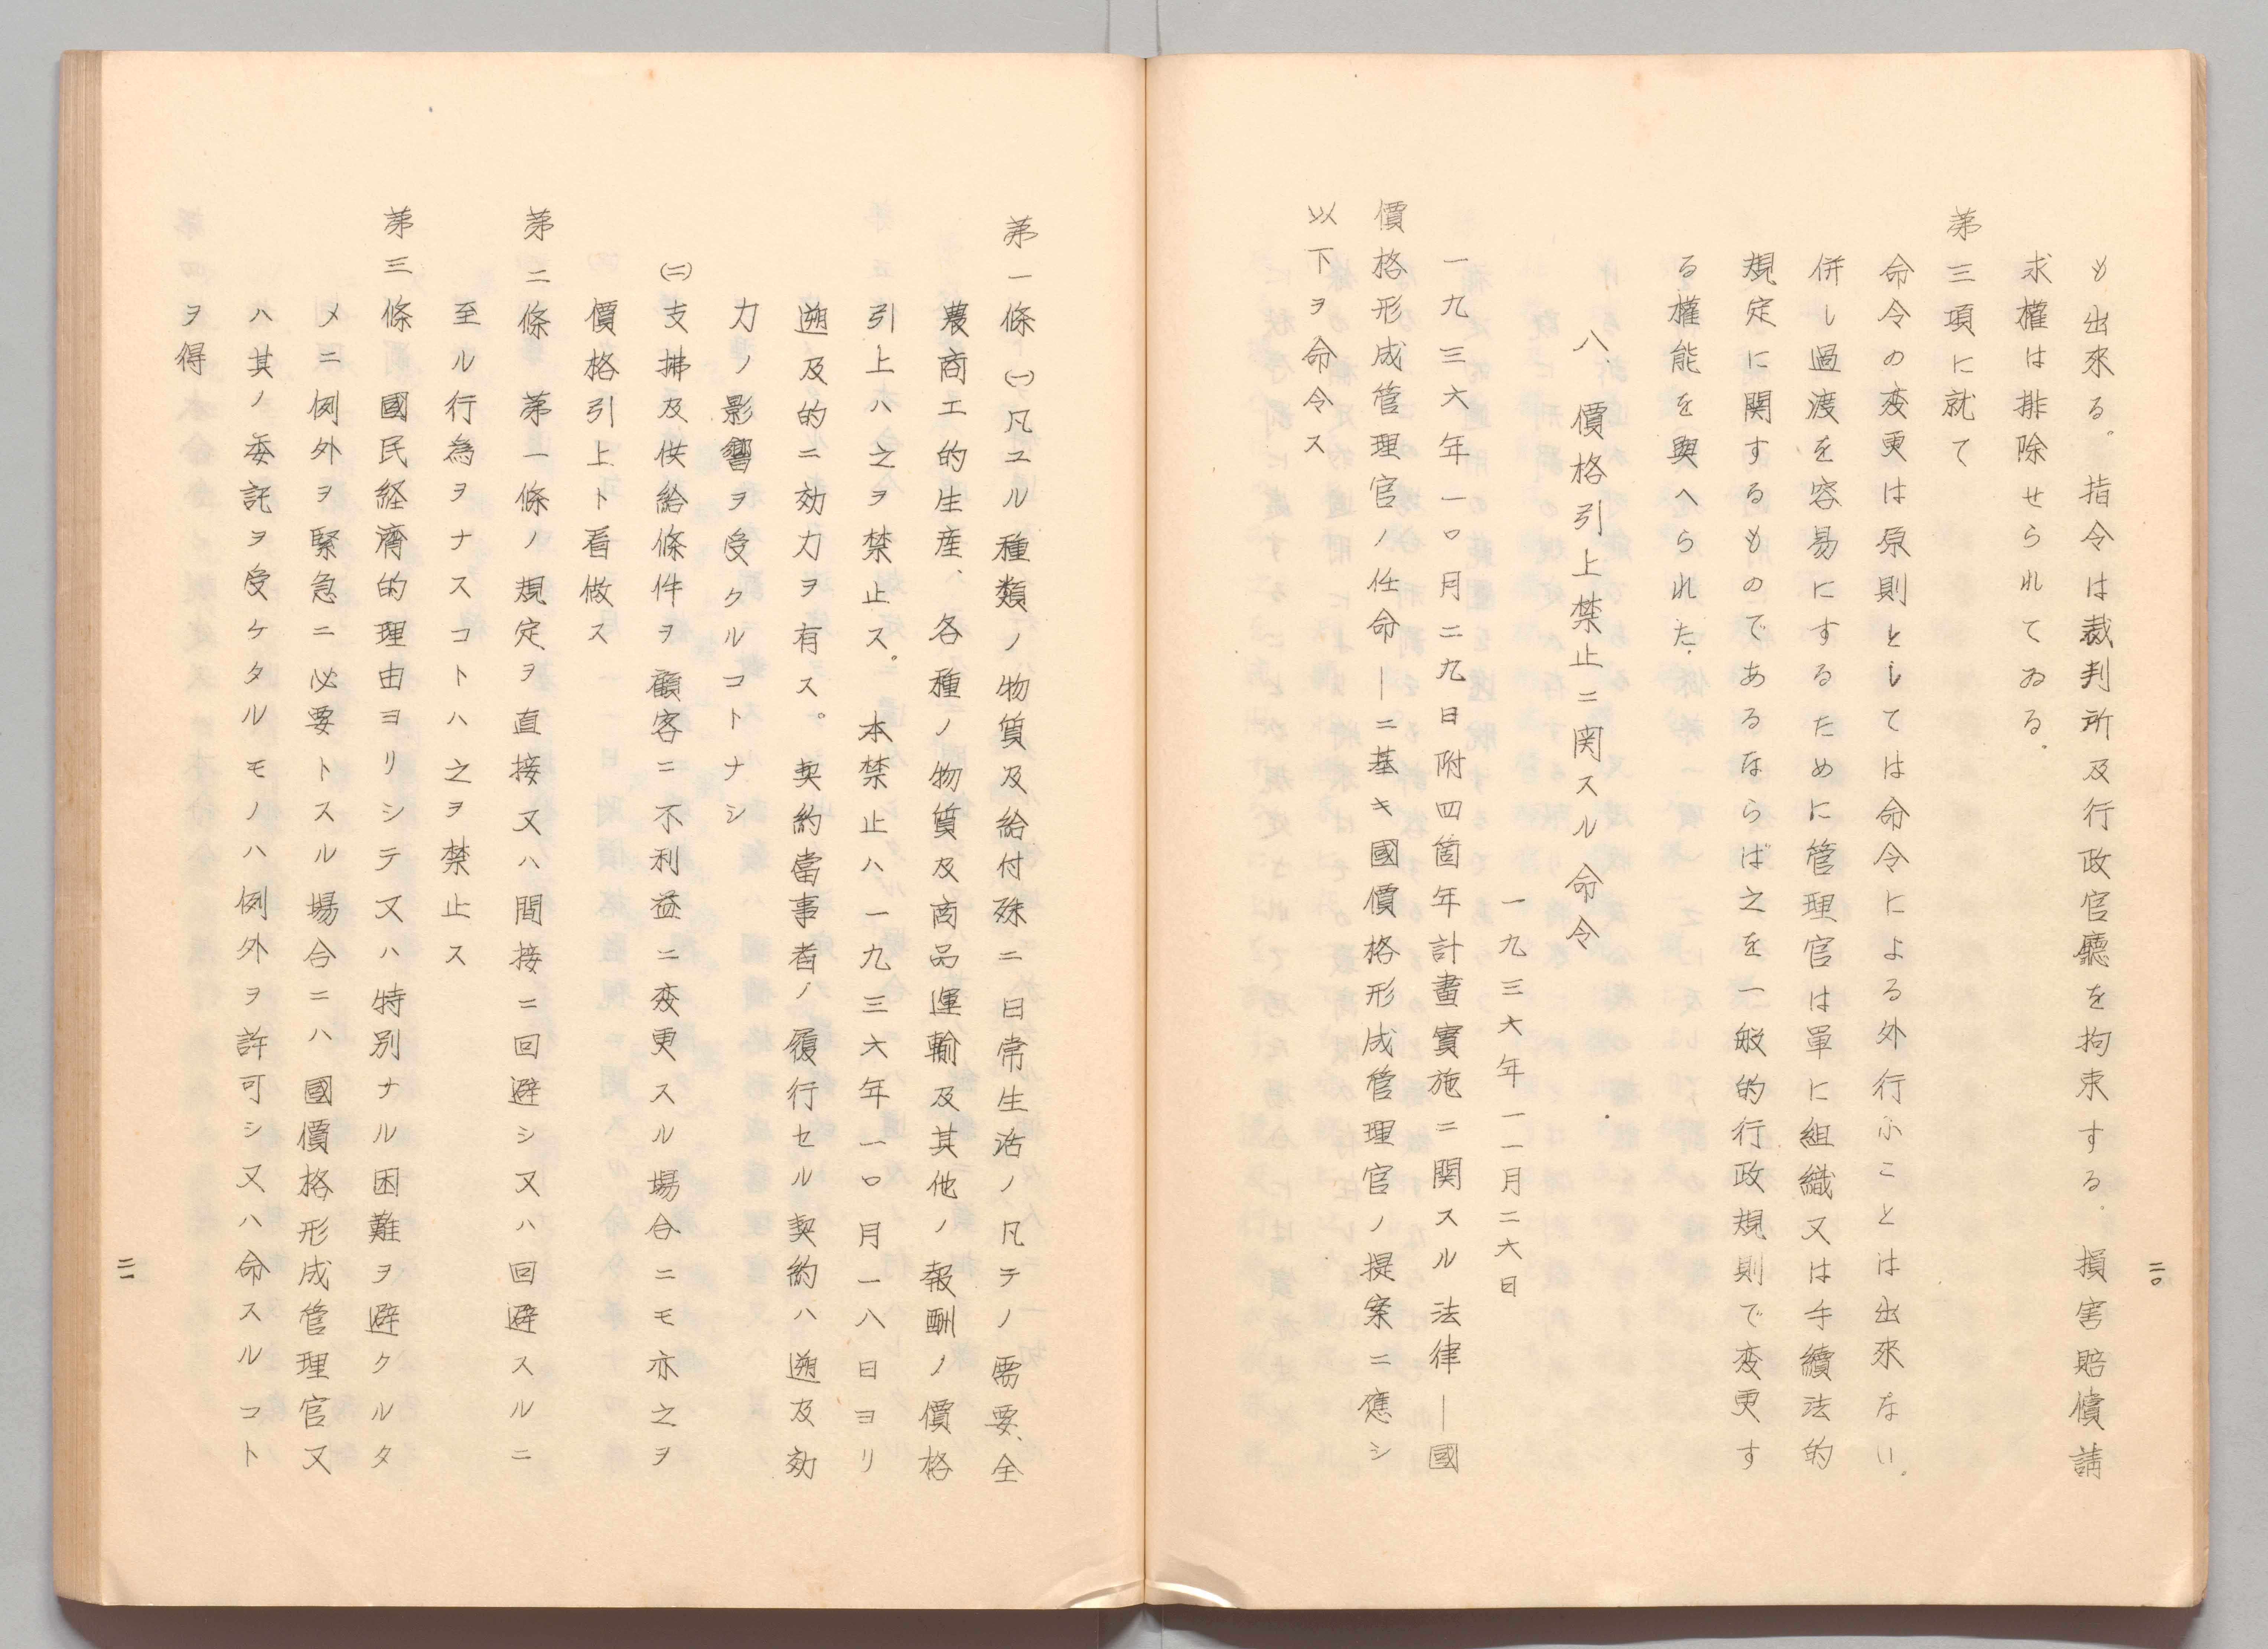 も出來る。指令は裁判所及行政官廳を拘束する。損害賠償請
求權は排除せられてゐる。
第三項に就て
命令の変更は原則としては命令による外行ふことは出來ない。
併し過渡を容易にするために管理官は單に組織又は手續法的
規定に関するものであるならば之を一般的行政規則で変更す
る權能を與へられた。
八、價格引上禁止ニ関スル命令
一九三六年一一月二六日
一九三六年一〇月二九日附四箇年計畫實施ニ関スル法律—國
價格形成管理官ノ任命—ニ基キ國價格形成管理官ノ提案ニ應シ
以下ヲ命令ス
二〇
第一條 ㈠凡ユル種類ノ物質及給付殊ニ日常生活ノ凡テノ需要、全
農商工的生産、各種ノ物質及商品運輸及其他ノ報酬ノ價格
引上ハ之ヲ禁止ス。本禁止ハ一九三六年一〇月一八日ヨリ
遡及的ニ効力ヲ有ス。契約當事者ノ履行セル契約ハ遡及効
力ノ影響ヲ受クルコトナシ
㈡支拂及供給條件ヲ顧客ニ不利益ニ変更スル場合ニモ亦之ヲ
價格引上ト看做ス
第二條 第一條ノ規定ヲ直接又ハ間接ニ回避シ又ハ回避スルニ
至ル行為ヲナスコトハ之ヲ禁止ス
第三條 國民経濟的理由ヨリシテ又ハ特別ナル困難ヲ避クルタ
メニ例外ヲ緊急ニ必要トスル場合ニハ國價格形成管理官又
ハ其ノ委託ヲ受ケタルモノハ例外ヲ許可シ又ハ命スルコト
ヲ得
二一